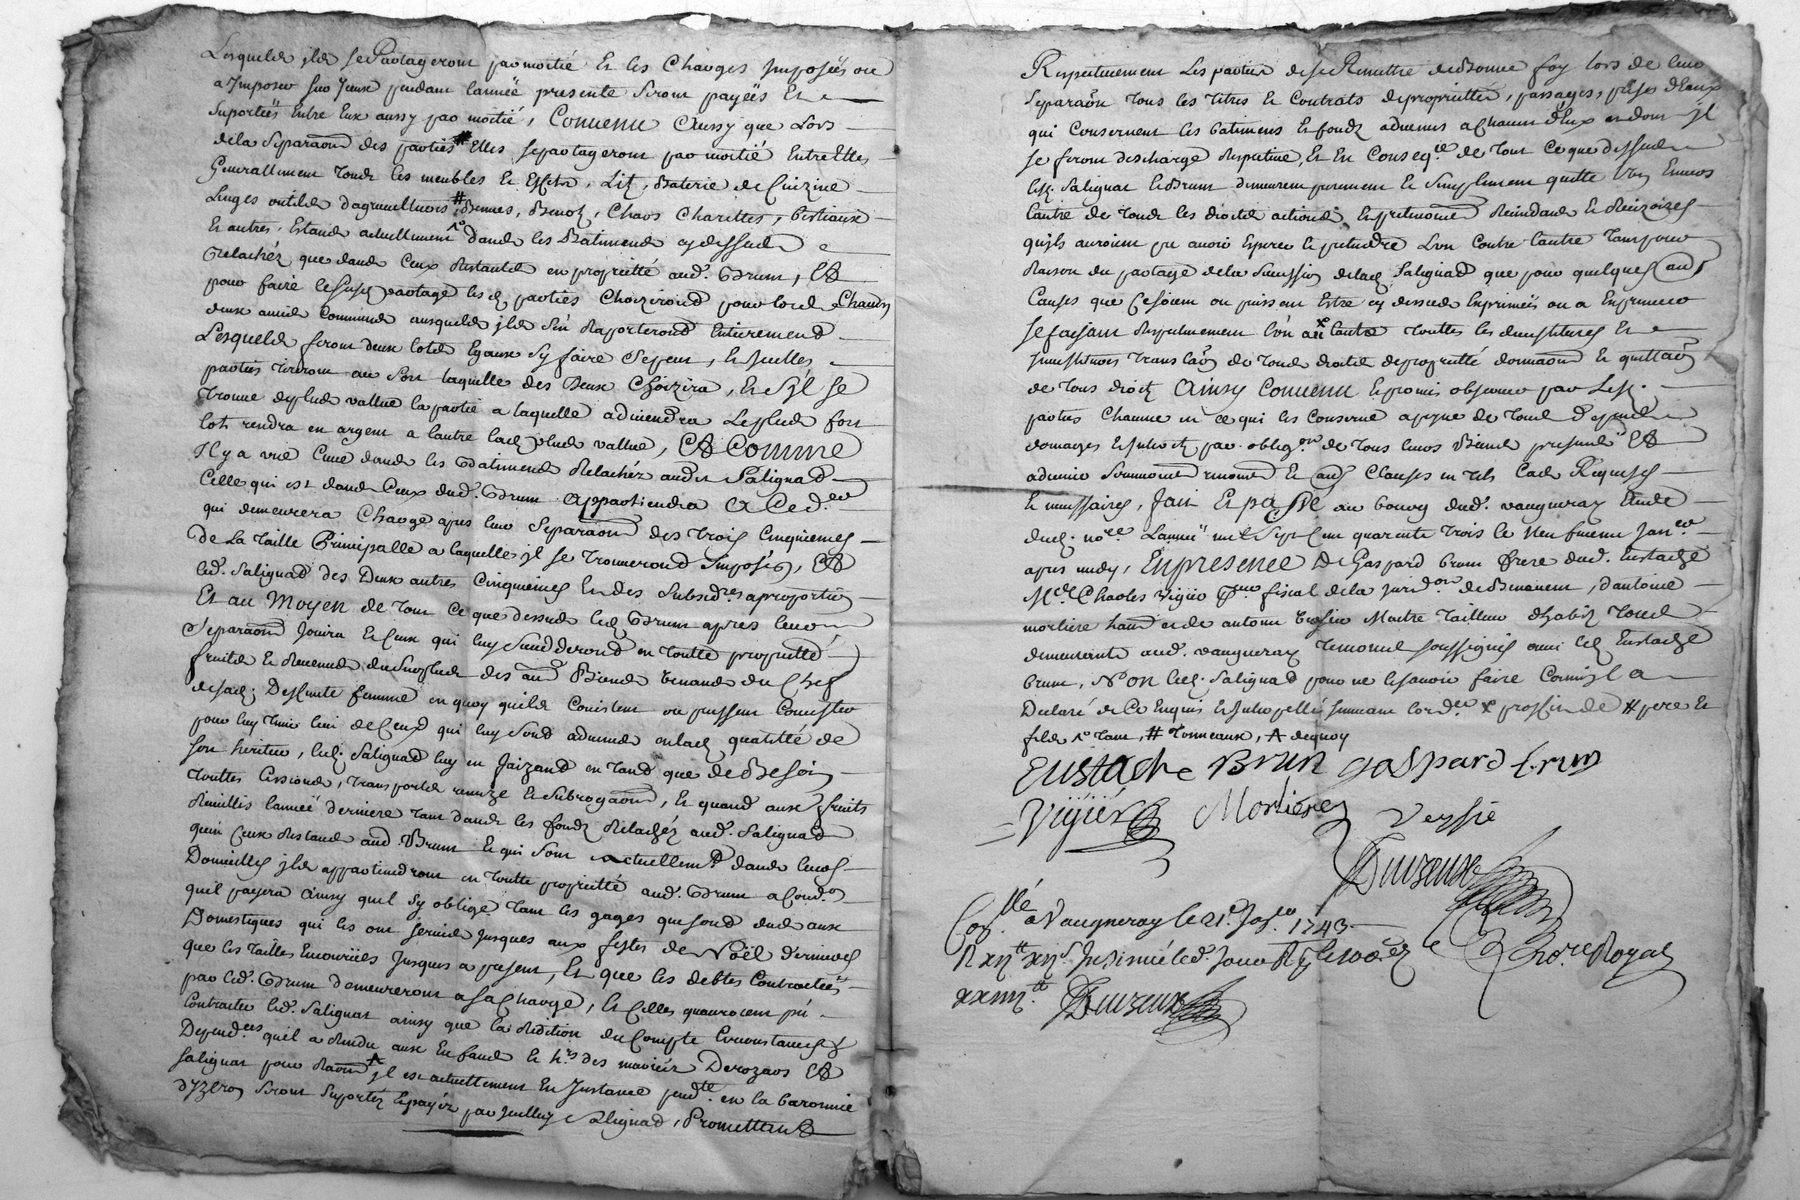 Lesquelds jlds se Partageront par moitié Et les Charges Imposées ou
a Imposer sur Iceux pendant lannée presente seront payéés Et
suportéés Entre Eux aussy par moitié, Convenu Aussy que Lors
dela separaon des parties # Elles separtageront par moitié Entre Elles
Generallement touds les meubles Et Effets, Lit, Baterie de Cuizine
Linges outilds dagriculture # Bennes, Benots, Chars Charettes, bestiaux
Et autres, Estands actuellement dands les Batiments cy dessuds
Relachéz que dands Ceux Restants en proprietté aud. Brun, Et
pour faire le susd partage lesd parties Choiziront pour lords Chacun
deux amies Communs ausquelds jlds s'en Raporteront Entierement
Lesquelds feront deux lotds Egaux sy faire se peut, Et Icelles
parties tireront au sort laquelle des Deux Choizira, Et s'il se
trouve de plus vallue la partie a laquelle adviendra Le plus fort
lot rendra en argent a lautre lad plus vallue, Et Comme
Il y a une Cuve dands les Batiments Relachéz aud Salignat
Celle qui est dands Ceux dud. Brun appartiendra A Ced.er
qui demeurera Chargé apres leur separaon des trois Cinquiemes
de La Taille Principalle a laquelle jl se trouveront Imposés, Et
led. Salignat des Deux autres Cinquiemes Et des subsid.res aproportion
Et au Moyen de tout Ce que dessuds led Brun apres leur
separaon Jouira Et Ceux qui luy succederont en toutte proprietté
fruits Et Revenuds du surplus des aud Biends venands du Chef
de sad. Deffunte femme en quoy quilds Consistent ou puissent Consister
pour luy tenir lieu de Ceux qui luy sont advenuds en lad quallité de
son heritier, led. Salignat luy en faizand en tand que de Besoin
touttes Cessionds, transportds remize Et subrogaon, Et quand aux fruits
Recuillis lannéé derniere tant dands les fonds Relachéz aud. Salignat
quen Ceux Restand aud Brun Et qui sont actuellemt dands leurs
Domicilles jlds appartiendront en toutte proprietté aud. Brun a Cond.on
quil payera ainsy quil sy oblige tant les gages qui sont duds aux
Domestiques qui les ont servids Jusques aux festes de Noël dernieres
que les tailles Encourues Jusques a present, Et que les debtes Contractéés
par led. Brun demeureront a sa Charge, Et Celles quauroient pû
Contracter led. Salignat ainsy que la Rédition du Compte Circonstances &
Depend.ces quil a Rendu aux Enfands Et h.rs des mariéz Derozars Et
Salignat pour Raison jl est actuellement En Instance pend.te en la baronnie
d'Yzeron seront suportéz Et payéz par Icelluy Salignat, Promettens
Respectivement Les parties de se Remettre de Bonne foy lors de leur
separaon tous les titres Et Contrats de proprietter, passages, prises d'Eaux
qui Consernent les batimens Et fonds advenus a Chacun d'Eux en dont jl
se feront descharge Respective, Et En Conseq.ce de tout Ce que dessuds
lesd. Salignat Et Brun demeurent purement Et simplement quitte Vers Envers
lautre de touds les droitds actionds Et pretentions Rescindands Et Rescizoires
qu'ils auroient pu avoir Esperer Et pretendre L'un Contre lautre tant pour
Raison du partage dela succession de lad Salignat que pour quelques aud
Causes que Ce soient ou puissent Estre cy dessuds Exprimées ou a Exprimer
se faisant Respectivement lún a lautre touttes les devestitures Et
Investitures translaon de touds droitds de proprietté donnaon Et quittaon
de tous droits Ainsy Convenu Et promis observer par Lesd.
parties Chacune en ce qui les Conserne a peyne de touds depends
domages Et Interets par oblig.on de tous leurs Biends presents Et
advenir soumissions renoncs Et aud Clauses en tels Cads Requises
Et necessaires, fait Et passé au bourg dud. vaugneray Etude
dud. no.re Lannéé mil sept Cent quarante trois le Neufvieme Jan.er
apres midy, En presence De Gaspard brun frere dud. Eustache
M.e Charles vigier Pr.eur fiscal de la Juridi.on de Benevent, d'antoine
morliere hand Et de antoine Veyssie Maitre Tailleur d'habits Touds
demeurants aud. vaugneray temoinds soussignés avec led Eustache
brun, Non led. Salignat pour ne le savoir faire Comme jl a
Declaré de Ce Enquis Et Interpellé suivant lord.ce # prossinde # pere Et
filds 1° tant, # tonneaux, A de quoy
Eustache Brun gaspard brun
Vigier Morlierez Veyssie
Duvreux
No.re Royal
Con.llé a Vaugneray le 21.e Jan.er 1743
xxiiii.tt Duvreux